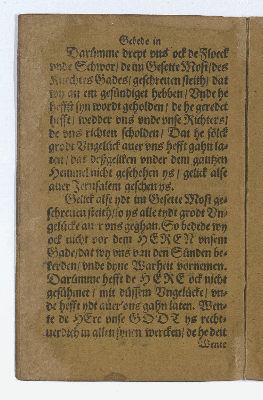 Gebede in
Darümme drept vns ock de Floeck
vnde Schwor / de im Gesette Mosi / des
Knechtes Gades / geschreuen steith / dat
wy an em gesündiget hebben / Vnde he
hefft syn wordt geholden / de he geredet
hefft / wedder vns vnde vnse Richters /
de vns richten scholden / Dat he sölck
grodt Vngelück auer vns hefft gahn la-
ten / dat deßgeliken vnder dem gantzen
Hemmel nicht geschehen ys / gelick alse
auer Jerusalem geschen ys.
Gelick alse ydt im Gesette Mosi ge-
schreuen steith / so ys alle ydt grodt Vn-
gelücke auer vns geghan. So bedede wy
ock nicht vor dem HEREN vnsem
Gade / dat wy vns van den Sünden be-
kerden / vnde dyne Warheit vornemen.
Darümme hefft de HERE ock nicht
gesühmet / mit düssem Vngelücke / vn-
de hefft ydt auer vns gahn laten. Wen-
te de HEre vnse GODT ys recht-
uerdich in allen synen wercken / de he deit
Wente